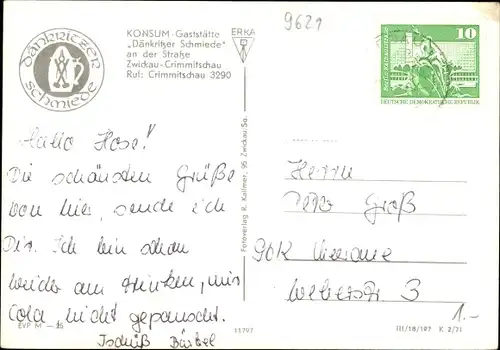 DÄNKRITZER
SCHMIEDE
KONSUM-Gaststätte
„Dänkritzer Schmiede"
an der Straße
Zwickau-Crimmitschau
Ruf: Crimmitschau 3290
ERKA
9621
10
DEUTSCHE DEMOKRATISCHE REPUBLIK
Hallo Hose!
Die schönsten Grüße
von hier, sende ich
Dir. Ich bin schon
wieder am trinken, nur
Cola, nicht gepanscht.
Tschüß Bärbel
Fotoverlag R. Kallmer, 95 Zwickau Sa.
Herrn
Peter Groß
Weberstr 3
1.-
EVP M -.25
11797
III/18/197 K 2/71